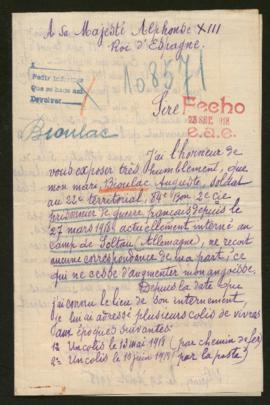 A Sa Majesté Alphonse XIII
Roi d'Espagne.
A
Pedir informes
Que se haga así
Devolver
108571
Sire
Fecho
e.a.e.
Bioulac
J'ai l'honneur de
vous exposer très humblement, que
mon mari, Bioulac Auguste, soldat
au 22e territorial, 84e Bon 2e Cie
prisonnier de guerre français depuis le
27 mars 1918 actuellement interné au
camp de Soltau (Allemagne), ne reçoit
aucune correspondance de ma part, ce
qui ne cesse d'augmenter mon angoisse.
Depuis la date que
j'ai connu le lieu de son internement,
je lui ai adressé plusieurs colis de vivres
aux époques suivantes:
1º Un colis le 13 mai 1918 (par chemin de fer)
2º Un colis le 10 juin 1918 (par la poste)